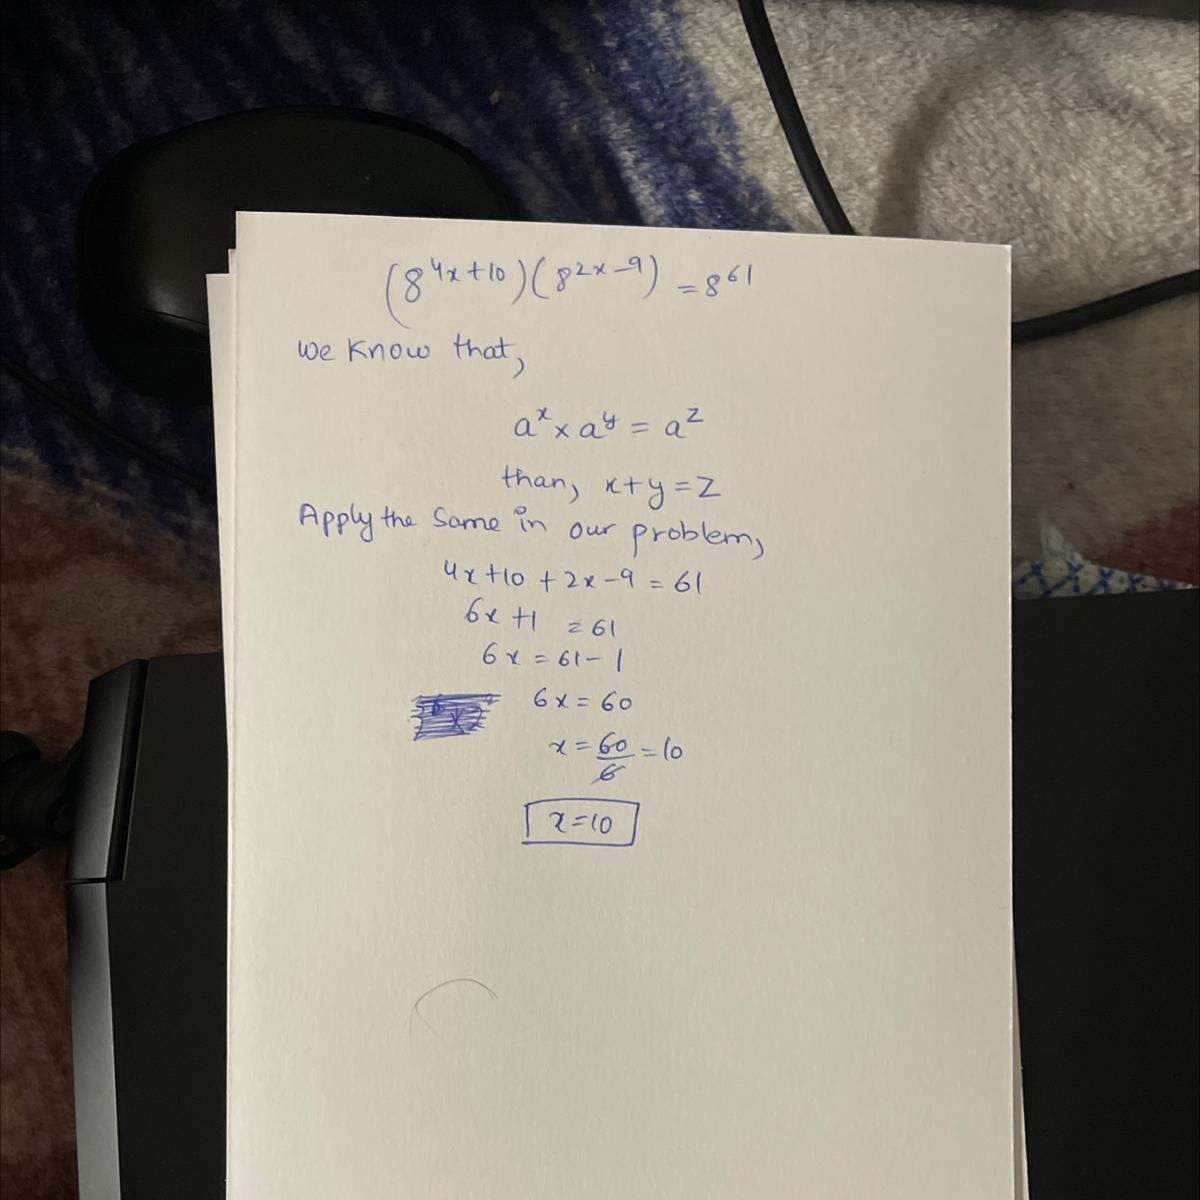 (8^{4x+10})(8^{2x-9}) = 8^{61}
We know that,
a^x × a^y = a^z
than, x+y=z
Apply the same in our problem,
4x+10 + 2x-9 = 61
6x +1 = 61
6x = 61-1
6x = 60
x = 60/6 = 10
x=10